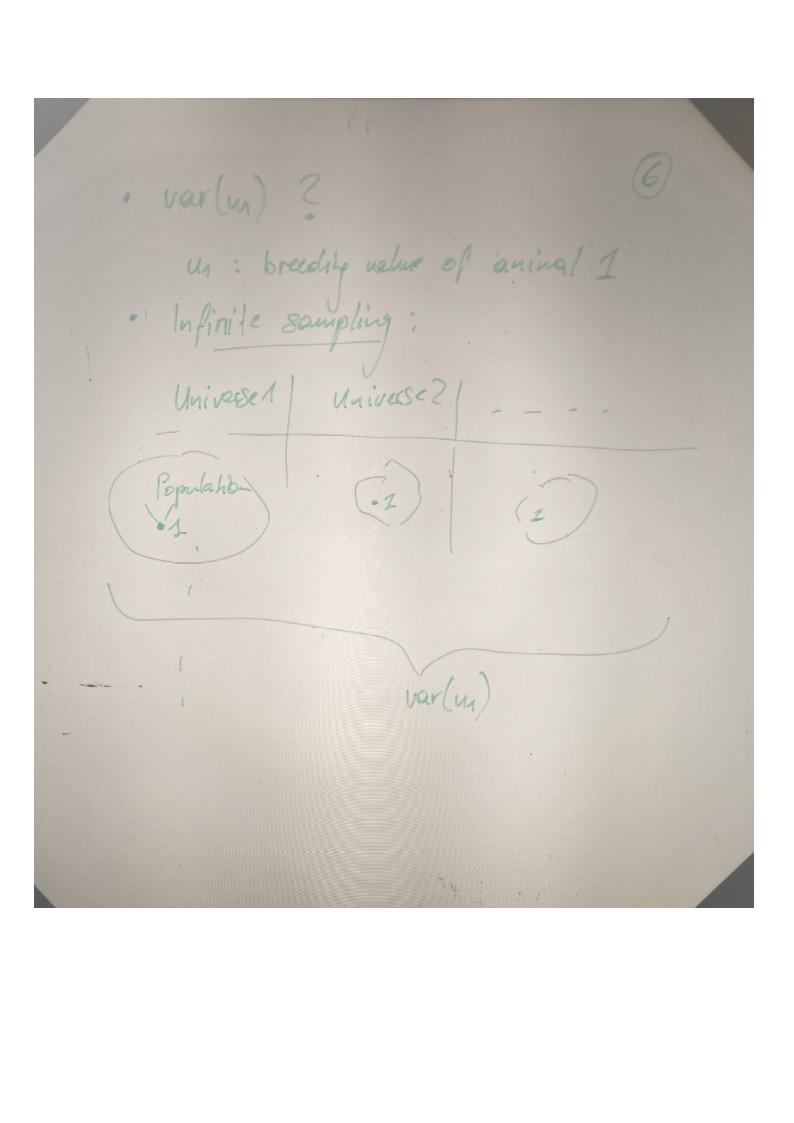 6
• var(u₁) ?
u₁ : breeding value of animal 1
• Infinite sampling :
Universe 1 | Universe 2 | - - - -
Population
• 1 • 1 1
var(u₁)